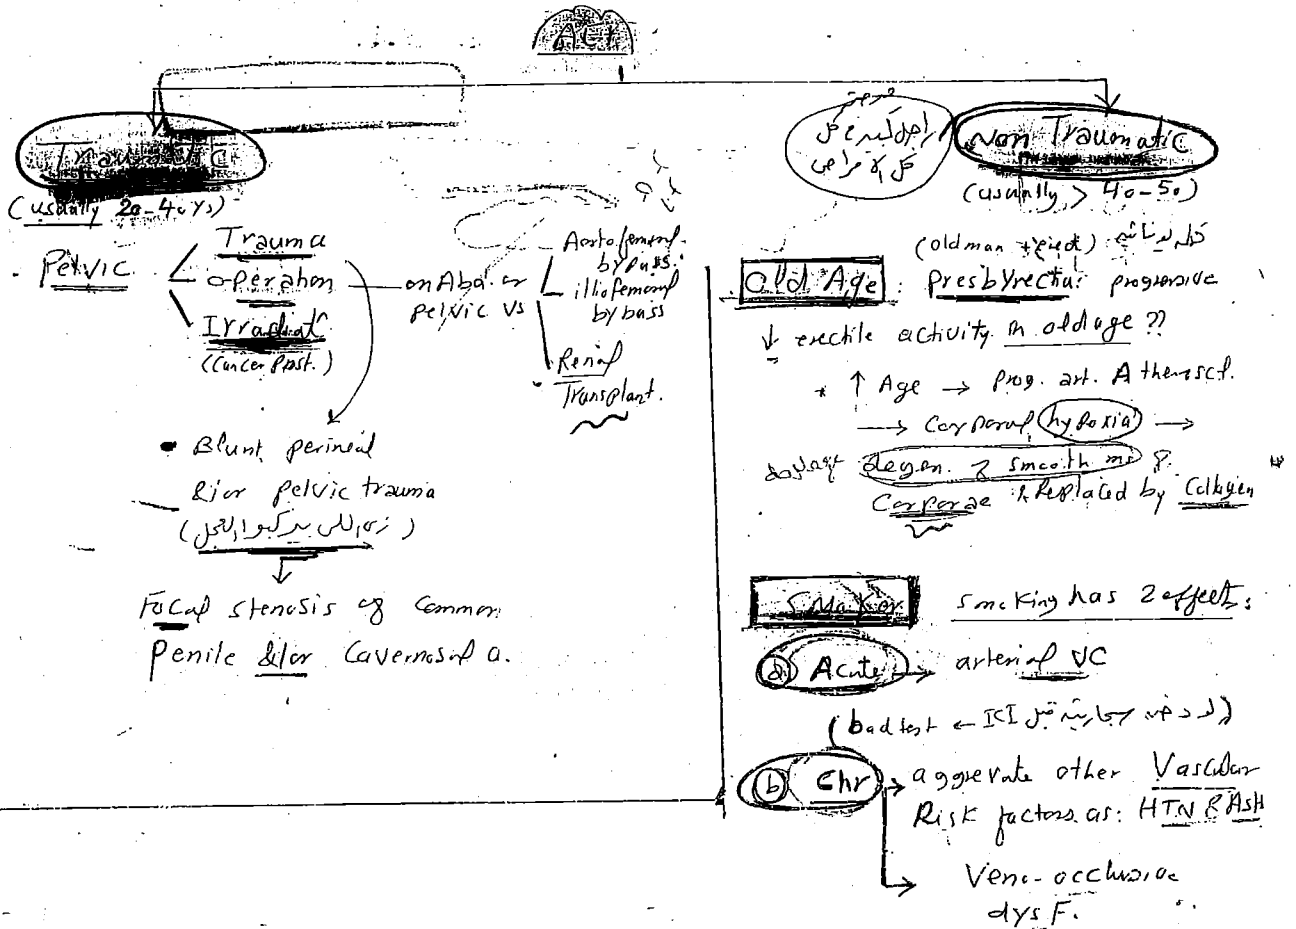 Traumatic
(usually 20-40 ys)
Pelvic
Trauma
operation
Irradiat°
(Cancer Prost.)
on Abd. or
pelvic Vs
Aortofemoral
bypass.
iliofemoral
bybass
Renal
Transplant.
• Blunt perineal
&/or pelvic trauma
(زى اللى بيركبوا العجل)
↓
Focal stenosis of Common
Penile &/or Cavernosal a.
راجل كبير
كل الامراض
Non Traumatic
(usually > 40-50)
(old man + erect)
Old Age : Presbyrectia: progressive
↓ erectile activity in old age ??
* ↑ Age → prog. art. Atheroscl.
→ Corporal hypoxia →
degen. of smooth ms
Corporae & Replaced by Collagen
Smoker smoking has 2 effects:
(a) Acute → arterial VC
(bad test ← ICI قبل
(b) Chr → aggrevate other Vascular
Risk factors as: HTN & Ash
→ Veno-occlusive
dys F.